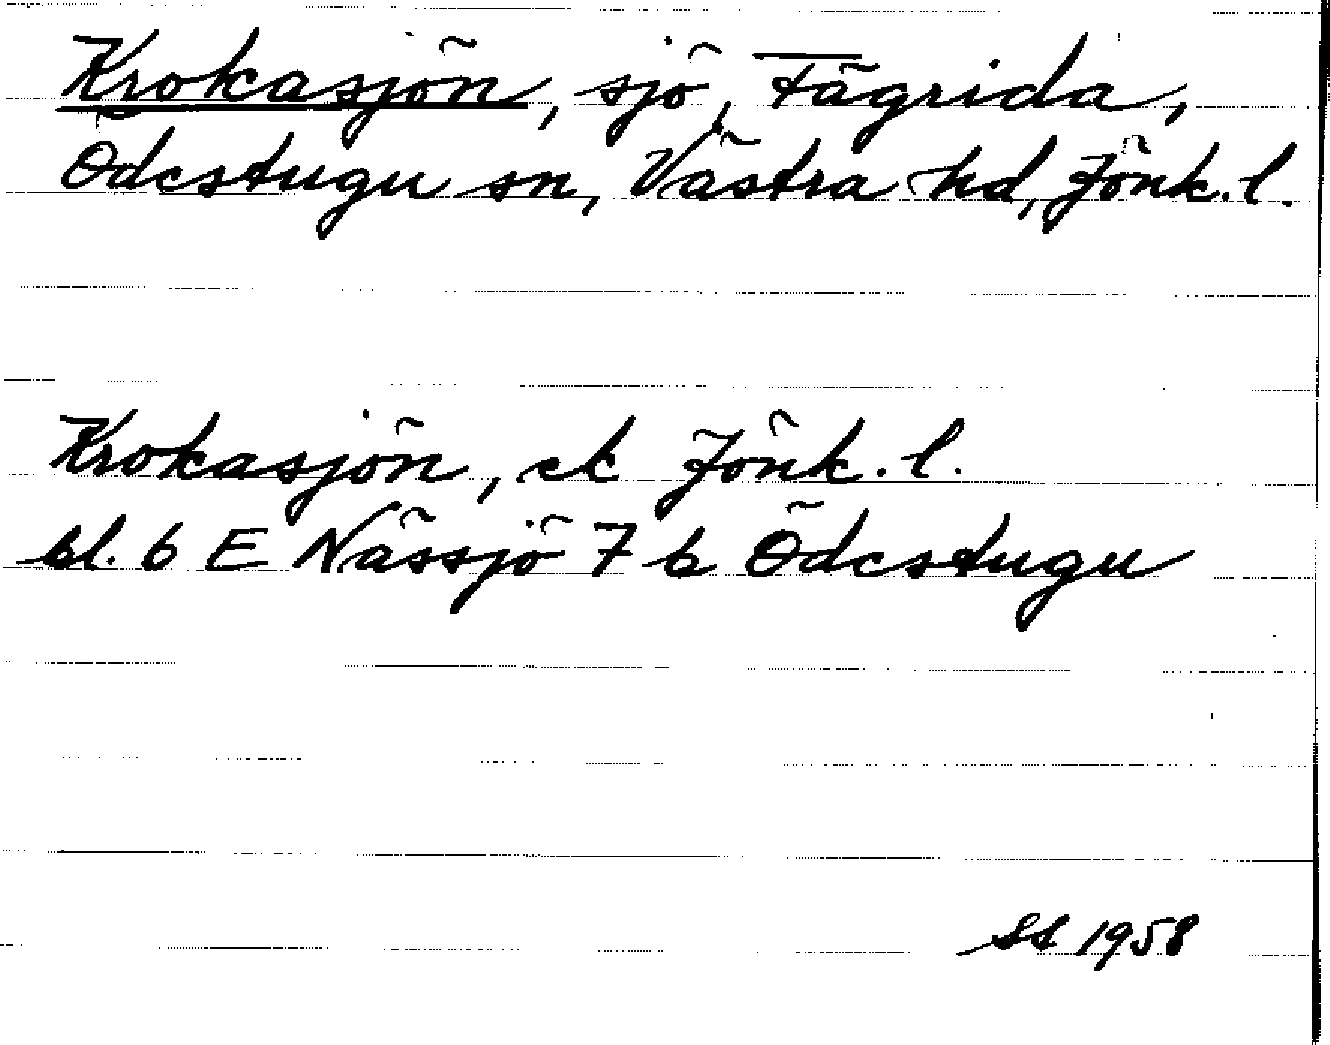 Krokasjön, sjö, Fägrida,
Ödestugu sn, Västra hd, Jönk. l.
Krokasjön, ek Jönk. l.
bl. 6 E Nässjö 7 b Ödestugu
SS 1958